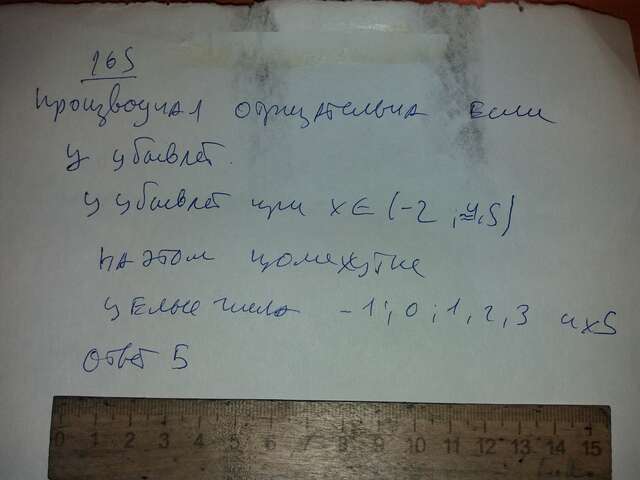 165
производная отрицательна если
у убывает.
у убывает при x ∈ (-2; 4,5)
на этом промежутке
целые числа -1; 0; 1, 2, 3 их 5
Ответ 5
0 1 2 3 4 5 6 7 8 9 10 11 12 13 14 15